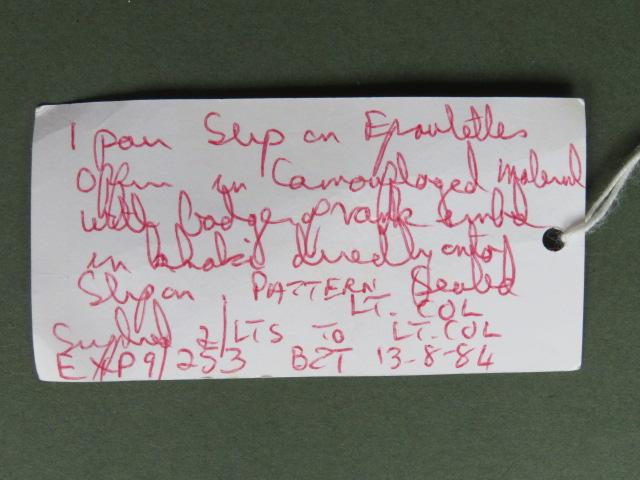 1 pair Slip on Epaulettes
Officer in Camouflaged Material
with badge of rank symbol
in khaki directly onto
Slip on PATTERN Sealed
LT. COL
Supplied 2/LTS TO LT. COL
EXP9/253 BZT 13-8-84